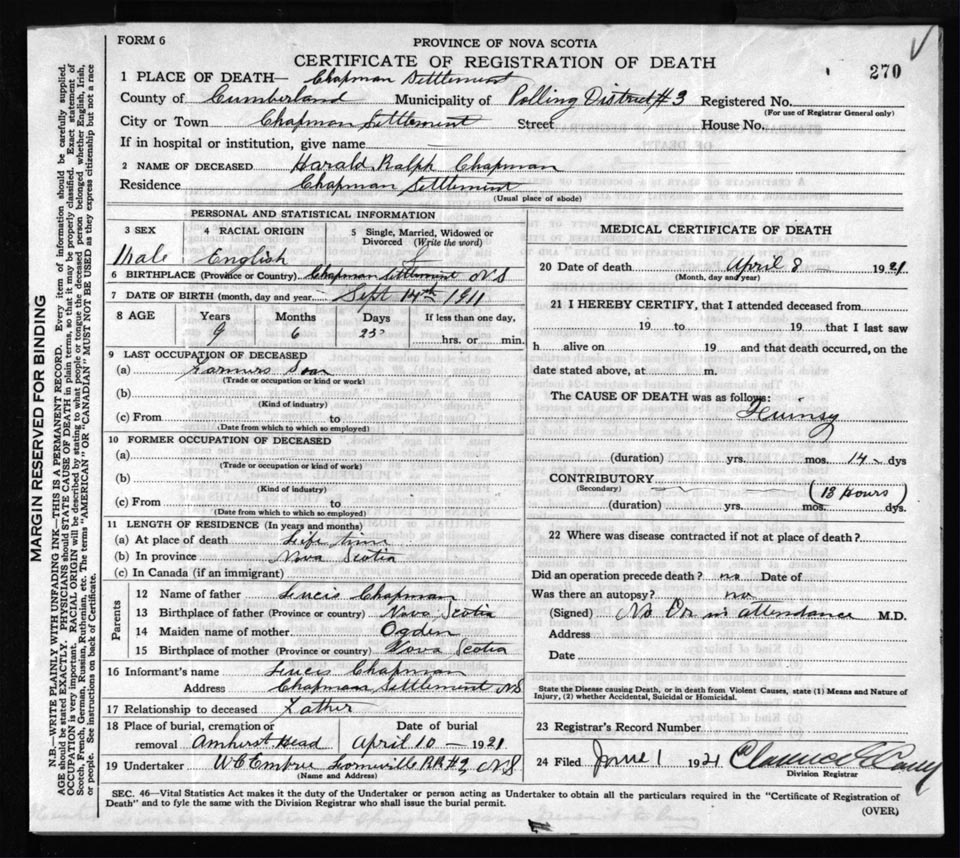 FORM 6
PROVINCE OF NOVA SCOTIA
CERTIFICATE OF REGISTRATION OF DEATH
270
1 PLACE OF DEATH— Chapman Settlement
County of Cumberland Municipality of Polling District #3 Registered No.
(For use of Registrar General only)
City or Town Chapman Settlement Street House No.
If in hospital or institution, give name —
2 NAME OF DECEASED Harald Ralph Chapman
Residence Chapman Settlement
(Usual place of abode)
PERSONAL AND STATISTICAL INFORMATION
3 SEX 4 RACIAL ORIGIN 5 Single, Married, Widowed or Divorced (Write the word)
Male English
6 BIRTHPLACE (Province or Country) Chapman Settlement N S
7 DATE OF BIRTH (month, day and year) Sept 14th 1911
8 AGE Years Months Days If less than one day,
9 6 25 hrs. or min.
9 LAST OCCUPATION OF DECEASED
(a) Farmers Son
(Trade or occupation or kind or work)
(b)
(Kind of industry)
(c) From to
(Date from which to which so employed)
10 FORMER OCCUPATION OF DECEASED
(a)
(Trade or occupation or kind of work)
(b)
(Kind of industry)
(c) From to
(Date from which to which so employed)
11 LENGTH OF RESIDENCE (In years and months)
(a) At place of death Life time
(b) In province Nova Scotia
(c) In Canada (if an immigrant)
Parents
12 Name of father Chapman
13 Birthplace of father (Province or country) Nova Scotia
14 Maiden name of mother Ogden
15 Birthplace of mother (Province or country) Nova Scotia
16 Informant's name Chapman
Address Chapman Settlement NS
17 Relationship to deceased Father
18 Place of burial, cremation or removal Amherst Head
Date of burial April 10 — 1921
19 Undertaker W C Embree R R # NS
(Name and Address)
MEDICAL CERTIFICATE OF DEATH
20 Date of death April 8 — 1921
(Month, day and year)
21 I HEREBY CERTIFY, that I attended deceased from
19 to 19 that I last saw
h alive on 19 and that death occurred, on the
date stated above, at m.
The CAUSE OF DEATH was as follows:
Quinsy
(duration) yrs. mos. 14 dys
CONTRIBUTORY
(Secondary) (18 Hours)
(duration) yrs. mos. dys.
22 Where was disease contracted if not at place of death?
Did an operation precede death? no Date of
Was there an autopsy? no
(Signed) No Dr in attendance M.D.
Address
Date
State the Disease causing Death, or in death from Violent Causes, state (1) Means and Nature of
Injury, (2) whether Accidental, Suicidal or Homicidal.
23 Registrar's Record Number
24 Filed June 1 1921 Clarence
Division Registrar
SEC. 46—Vital Statistics Act makes it the duty of the Undertaker or person acting as Undertaker to obtain all the particulars required in the "Certificate of Registration of
Death" and to fyle the same with the Division Registrar who shall issue the burial permit.
(OVER)
MARGIN RESERVED FOR BINDING
N.B.—WRITE PLAINLY WITH UNFADING INK—THIS IS A PERMANENT RECORD. Every item of information should be carefully supplied.
AGE should be stated EXACTLY. PHYSICIANS should STATE CAUSE OF DEATH in plain terms, so that it may be properly classified. Exact statement of
OCCUPATION is very important. RACIAL ORIGIN will be described by stating to what people or tongue the deceased person belonged whether English, Irish,
Scotch, French, German, Russian, Ruthenian, etc. The terms "AMERICAN" OR "CANADIAN" MUST NOT BE USED as they express citizenship but not a race
or people. See instructions on back of Certificate.